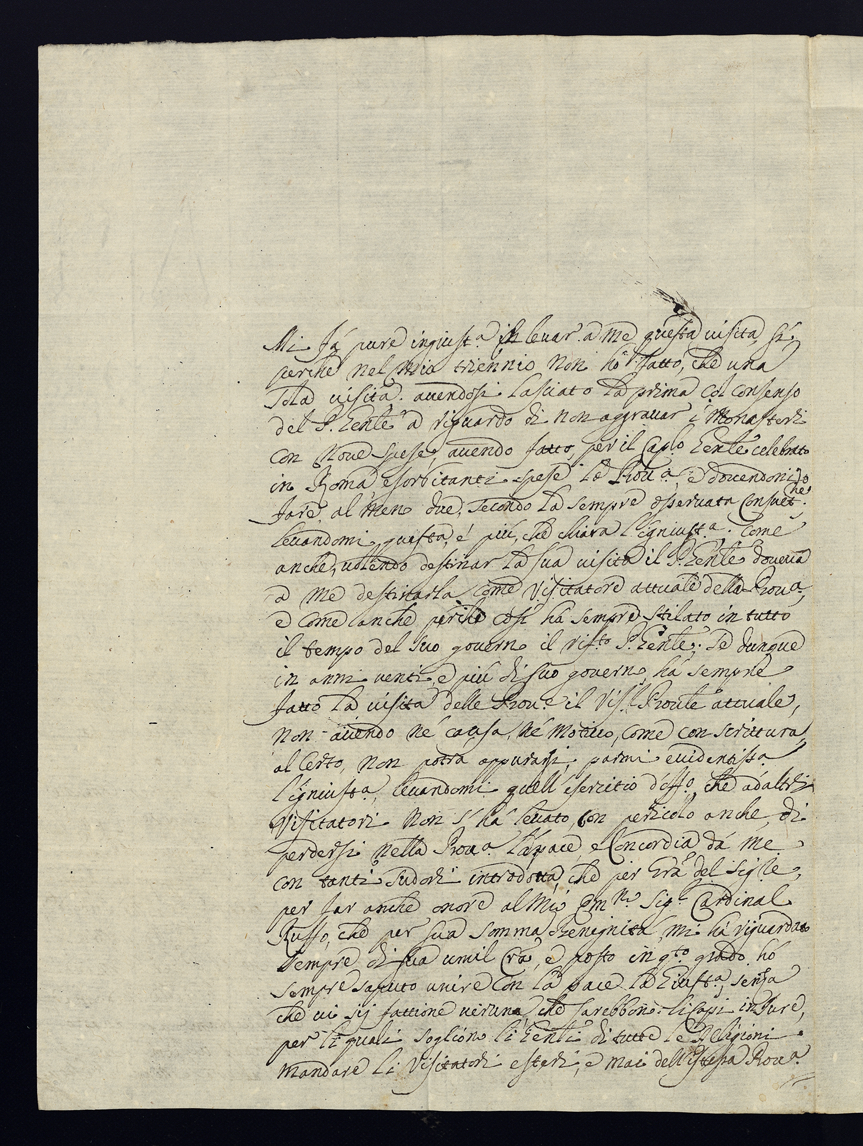 Mi fà pure ingiust.a in levar à me questa visita sì,
perche nel mio triennio non hò fatto, che una
sola visita. avendosi lasciato la prima col consenso
del P. Gen̄le à riguardo di non aggravar i Monasteri
con nove spese, avendo fatto, per il Cap.o Gen̄le celebrato
in Roma esorbitanti spese la Prov.a, e dovendoni
fare al meno due, secondo la sempre osservata
levandomi questa, é più, che chiara l'igniust.a. Come
anche, volendo destinar la sua visita il P. Gen̄le doveva
à me destinarla come Visitatore attuale della Prov.a,
e come anche perche così hà sempre stilato in tutto
il tempo del suo governo il rif.to P. Gen̄le. Se dunque
in anni venti, e più di suo governo, hà sempre
fatto la visita delle Prov.e il Vis.r Prov̄le attuale,
non avendo né causa, né motivo, come con scrittura,
al Certo, non potrà appurarsi, parmi evidentiss.a
l'igniust.a, levandomi quell'esercitio d'off.o, che ad altri
Visitatori non s'hà levato, con pericolo anche, di
perdersi nella Prov.a la pace e Concordia da me
con tanti sudori introdotta, che per gra. del Sig.re,
per far anche onore al mio Em̄.o Sig.r Cardinal
Ruffo, che per sua somma benignità, mi hà riguardato
sempre di sua umil Cr.a, e posto in q.to grado hò
sempre saputo unire con la pace la Giust.a, senza
che vi sij fattione veruna, che sarebbono li casi in Jure,
per li quali sogliono li Gen̄li di tutte le Religioni
mandare li Visitatori esteri, e mai dell'istessa Prov.a